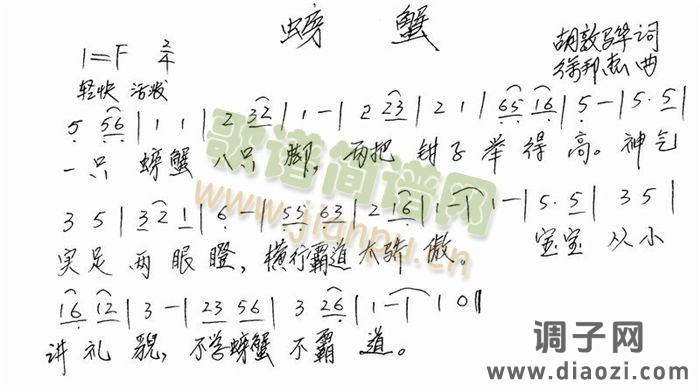 螃 蟹
1=F 2/4
胡敦骅词
轻快 活泼
徐邦杰曲
5 56 | 1 1 | 2 32 | 1 - | 2 23 | 2 1 | 65 16 | 5 - | 5. 5 |
一只 螃蟹 八只 脚, 两把 钳子 举 得 高。 神气
3 5 | 32 1 | 6 - | 55 63 | 2 16 | 1 - | 1 - | 5. 5 | 3 5 |
实足 两 眼 瞪, 横行霸道 太骄 傲。 宝宝 从小
16 12 | 3 - | 23 56 | 3 26 | 1 - | 1 0 ||
讲 礼 貌, 不学螃蟹 不 霸 道。
歌谱简谱网
www.jianpu.cn
调子网
www.diaozi.com